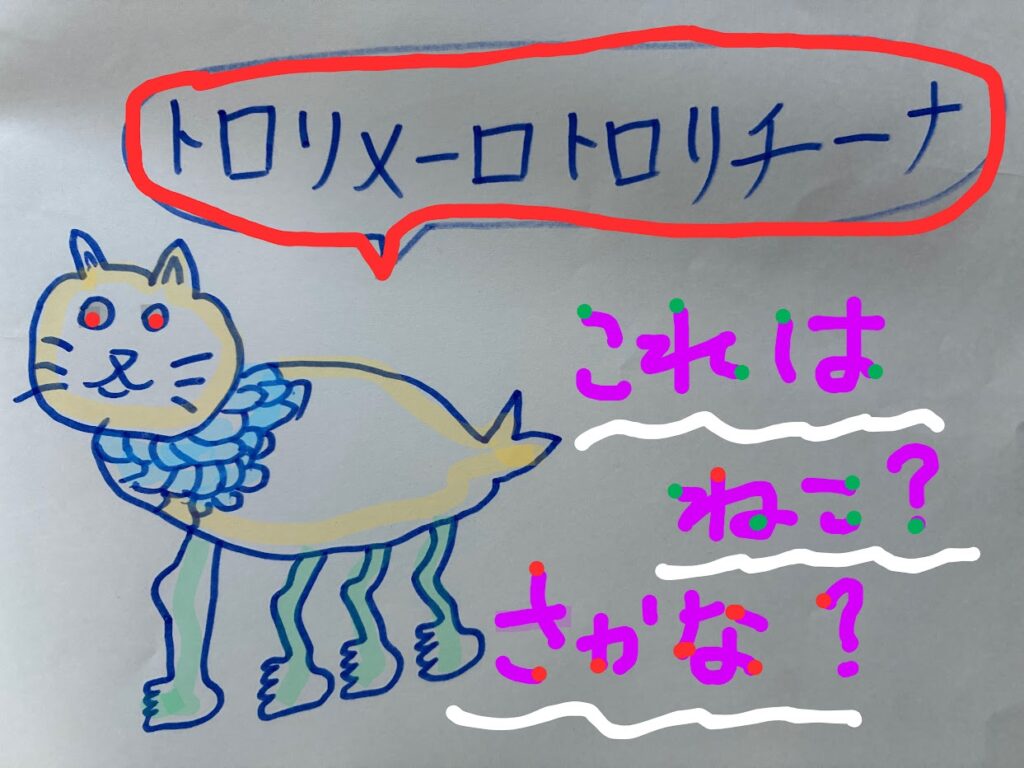 トロリメーロトロリチーナ
これは
ねこ?
さかな?